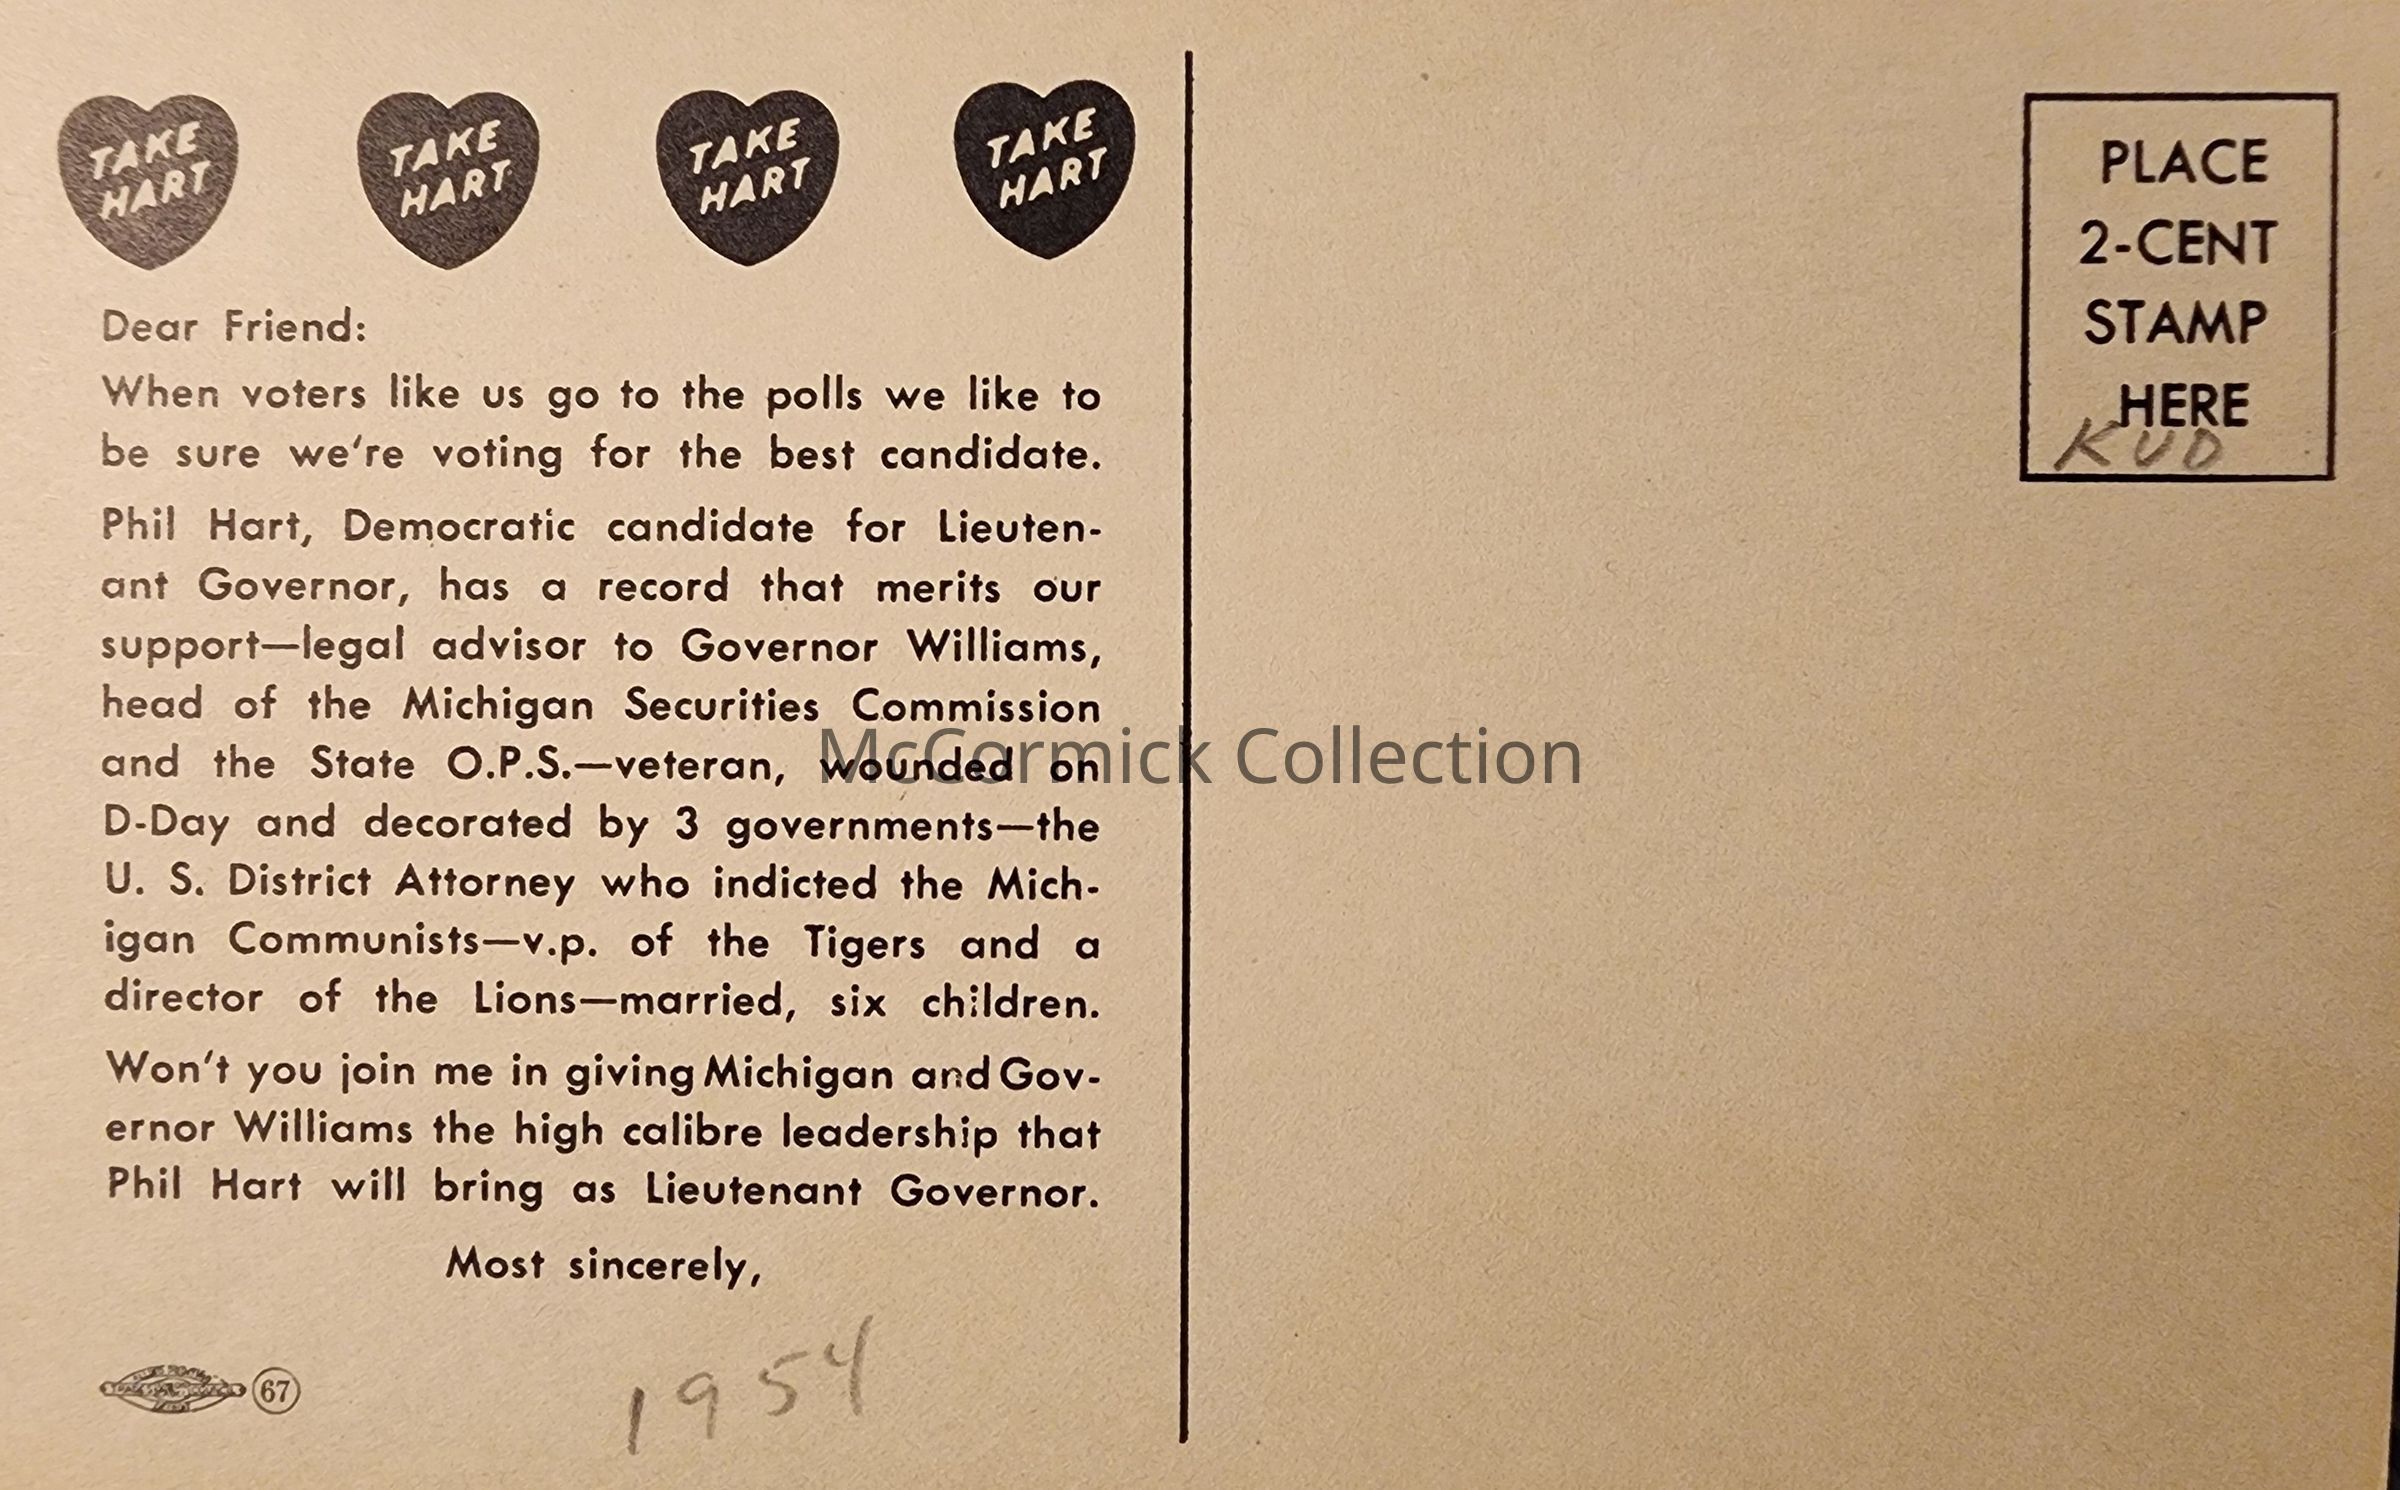 TAKE
HART
TAKE
HART
TAKE
HART
TAKE
HART
Dear Friend:
When voters like us go to the polls we like to
be sure we're voting for the best candidate.
Phil Hart, Democratic candidate for Lieuten-
ant Governor, has a record that merits our
support—legal advisor to Governor Williams,
head of the Michigan Securities Commission
and the State O.P.S.—veteran, wounded on
D-Day and decorated by 3 governments—the
U. S. District Attorney who indicted the Mich-
igan Communists—v.p. of the Tigers and a
director of the Lions—married, six children.
Won't you join me in giving Michigan and Gov-
ernor Williams the high calibre leadership that
Phil Hart will bring as Lieutenant Governor.
Most sincerely,
67
1954
PLACE
2-CENT
STAMP
HERE
KUD
McCormick Collection